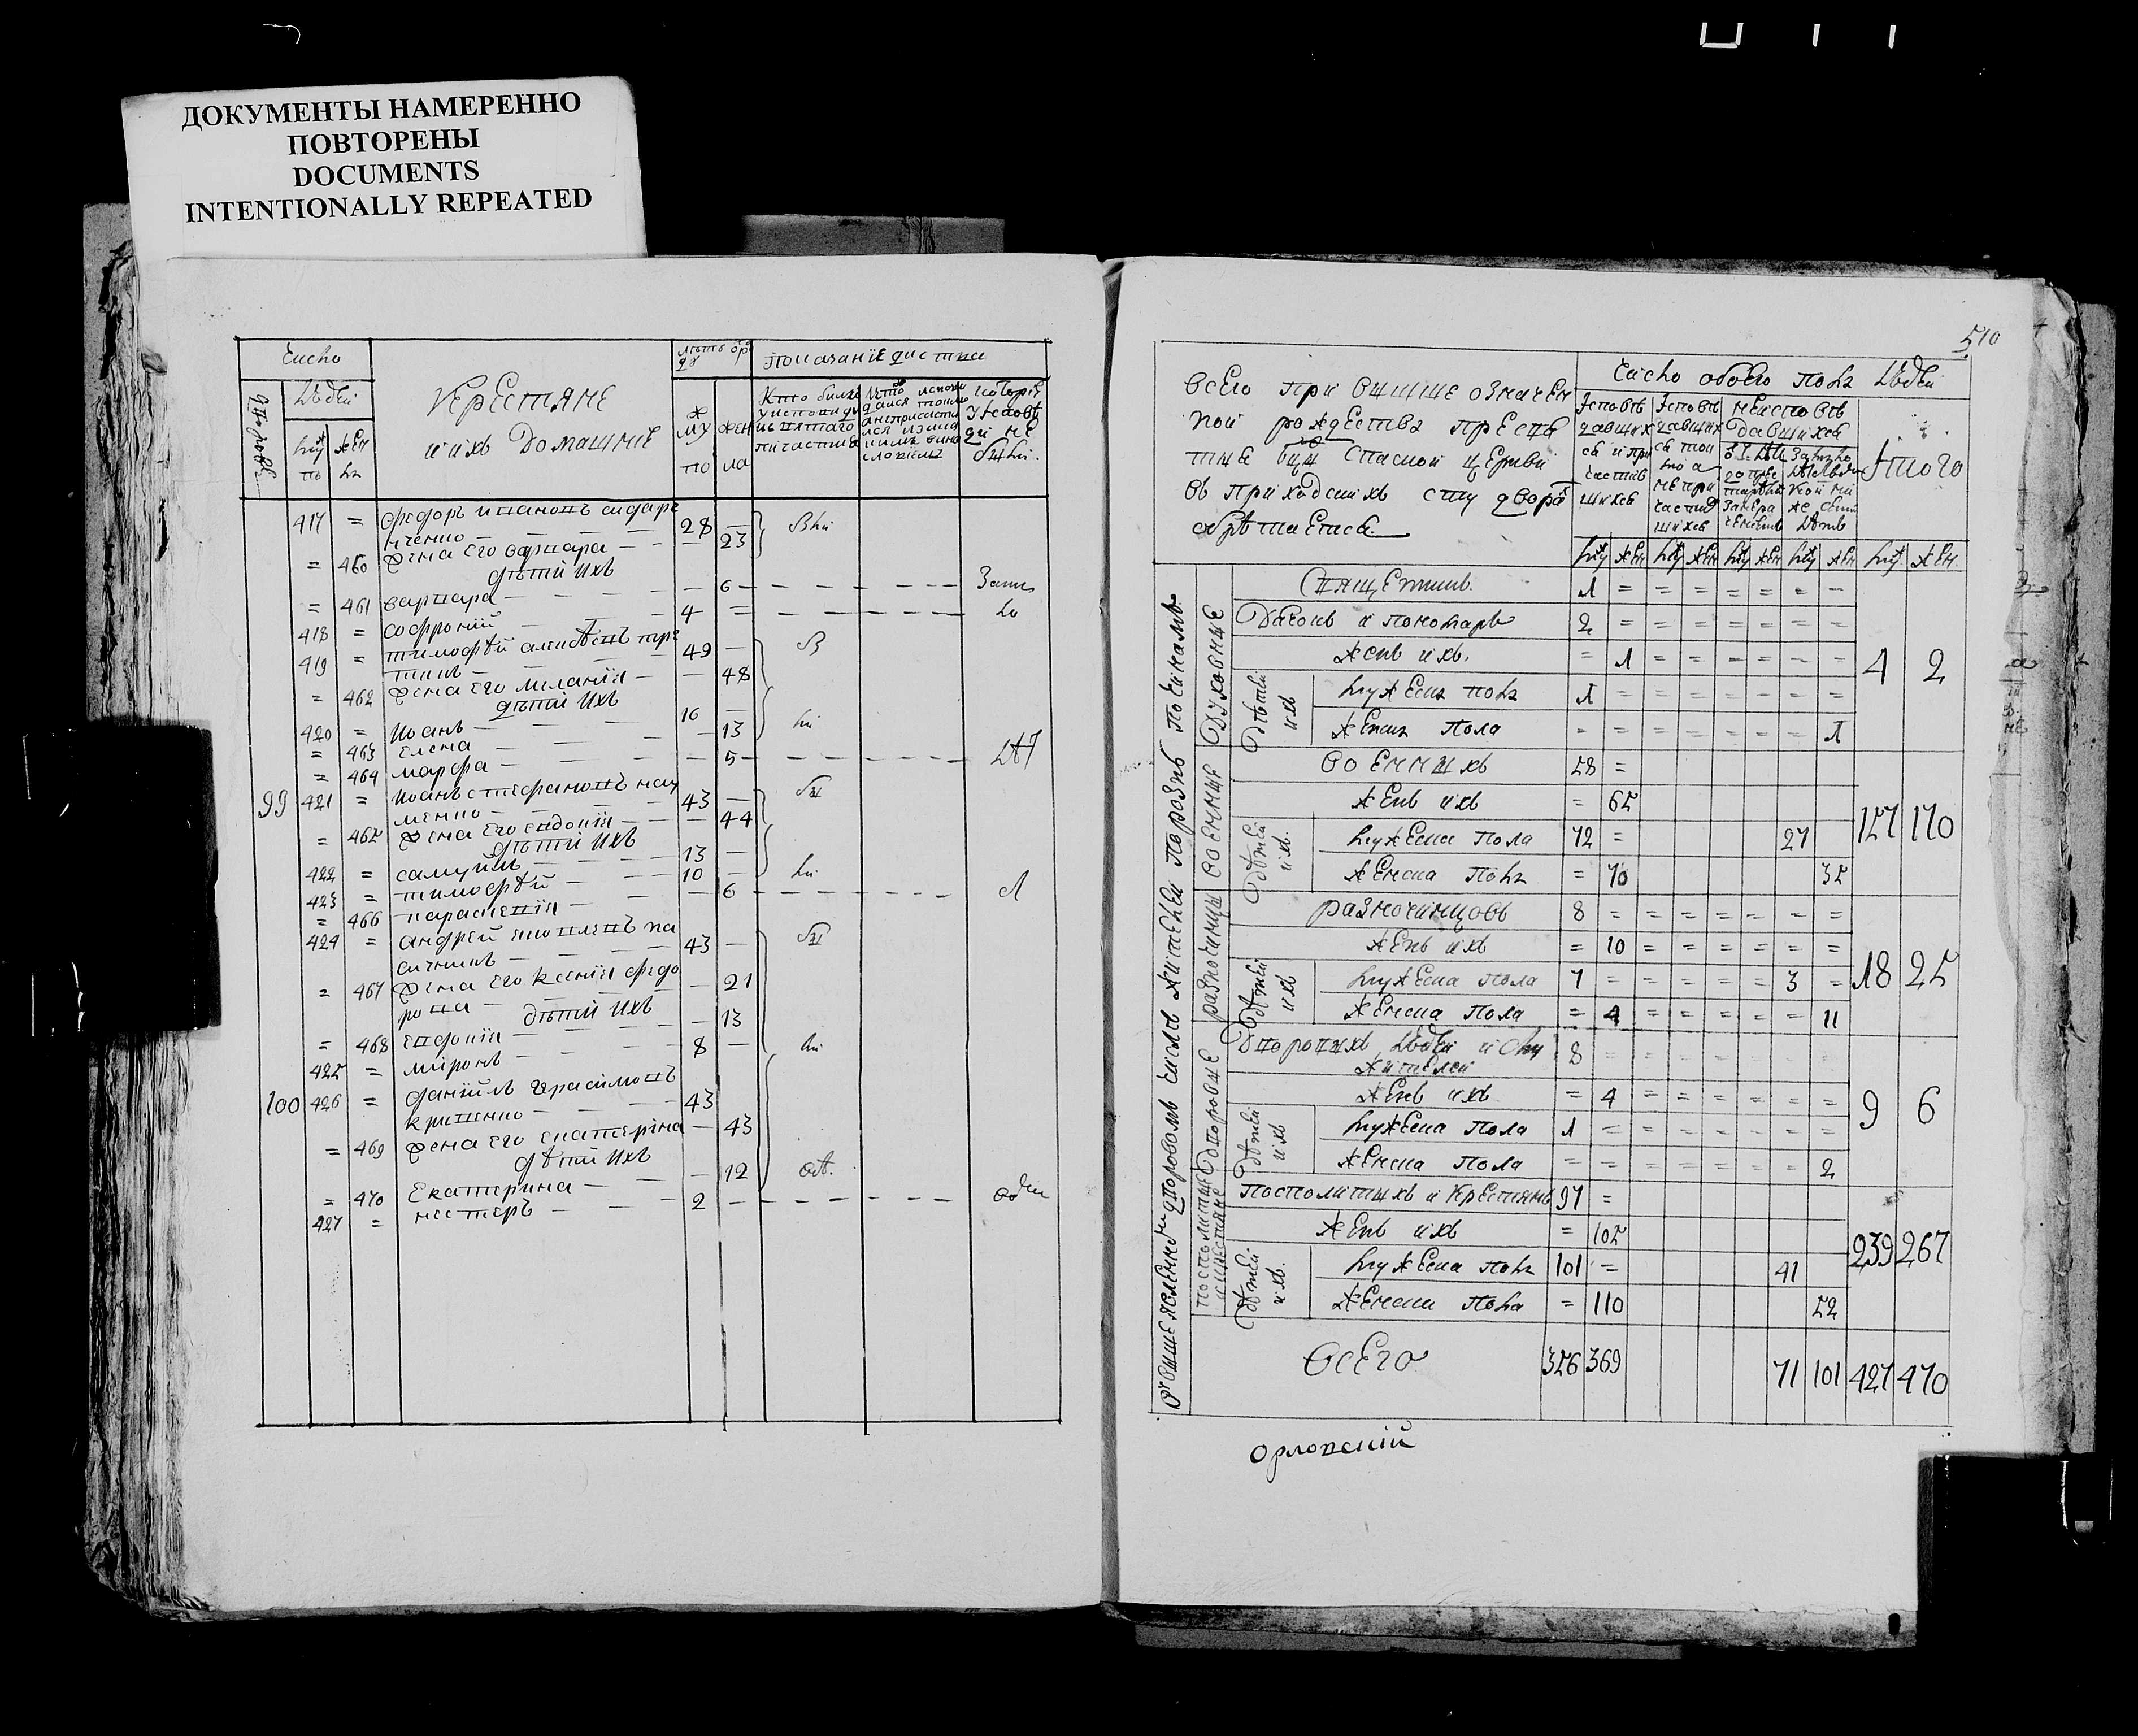 ДОКУМЕНТЫ НАМЕРЕННО
ПОВТОРЕНЫ
DOCUMENTS
INTENTIONALLY REPEATED
Число
людей
крестяне
и ихъ домашніе
показаніе дѣиства
му
жен
по
ла
417 = федоръ ивановъ сидоре
нченко — 28 —
= 460 жена его варвара — — 23
дѣти ихъ
= 461 варвара — — 6
418 = софроній — 4 =
419 = тимофѣй
49 —
= 462 жена его меланія — — 48
дѣти ихъ
420 = иоанъ — 16 —
= 463 елена — — 13
= 464 марфа — — 5
99 421 = иоанъ стефановъ нау
менко — 43 —
= 465 жена его евдокія — — 44
дѣти ихъ
422 = самуйлъ — 13 —
423 = тимофѣй — 10 —
= 466 параскевія — — 6
424 = андрей яковлевъ па
сичникъ — 43 —
= 467 жена его ксенія федо
рова — — 21
дѣти ихъ
= 468 евдокія — — 13
425 = миронъ — 8 —
100 426 = даніилъ герасимовъ
кривенко — 43
= 469 жена его екатерина — 43
дѣти ихъ
= 470 Екатерина — — 12
427 = нестеръ — 2 —
510
всего при вишше означен
ной рождества пресвя
тие бцы спаской церкви
въ приходскихъ сту дворахъ
обрѣтается
число обоего пола людей
Итого
муж жен муж жен муж жен муж жен муж. жен.
духовние
Священникъ 1 = = = = = = =
Дячокъ и пономаръ 2 = = = = = = =
женъ ихъ = 1 = = = = = =
дѣтей ихъ
мужеска пола 1 = = = = = = =
женска пола = = = = = = = 1
4 2
военние
военнихъ 58 =
женъ ихъ = 65
дѣтей ихъ
мужеска пола 72 = 27
женска пола = 70 35
157 170
разночинци
разночинцовъ 8 = = = = = = =
женъ ихъ = 10 = = = = = =
дѣтей ихъ
мужеска пола 7 = = = = = 3 =
женска пола = 4 = = = = = 11
18 25
дворовие
Дворовихъ людей и слу
жителей 8 = = = = = = =
женъ ихъ = 4 = = = = = =
дѣтей ихъ
мужеска пола 1 = = = = = = =
женска пола = = = = = = = 2
9 6
посполитие и крестяне
посполитихъ и крестянъ 97 =
женъ ихъ = 105
дѣтей ихъ
мужеска пола 101 = 41
женска пола = 110 52
239 267
Всего 356 369 71 101 427 470
орловскій